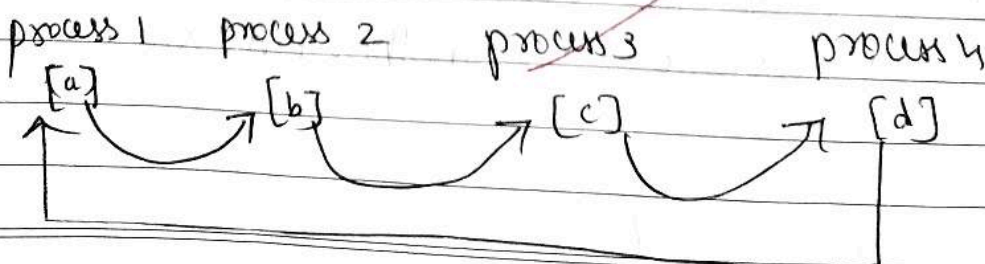 process 1 process 2 process 3 process 4
[a] [b] [c] [d]